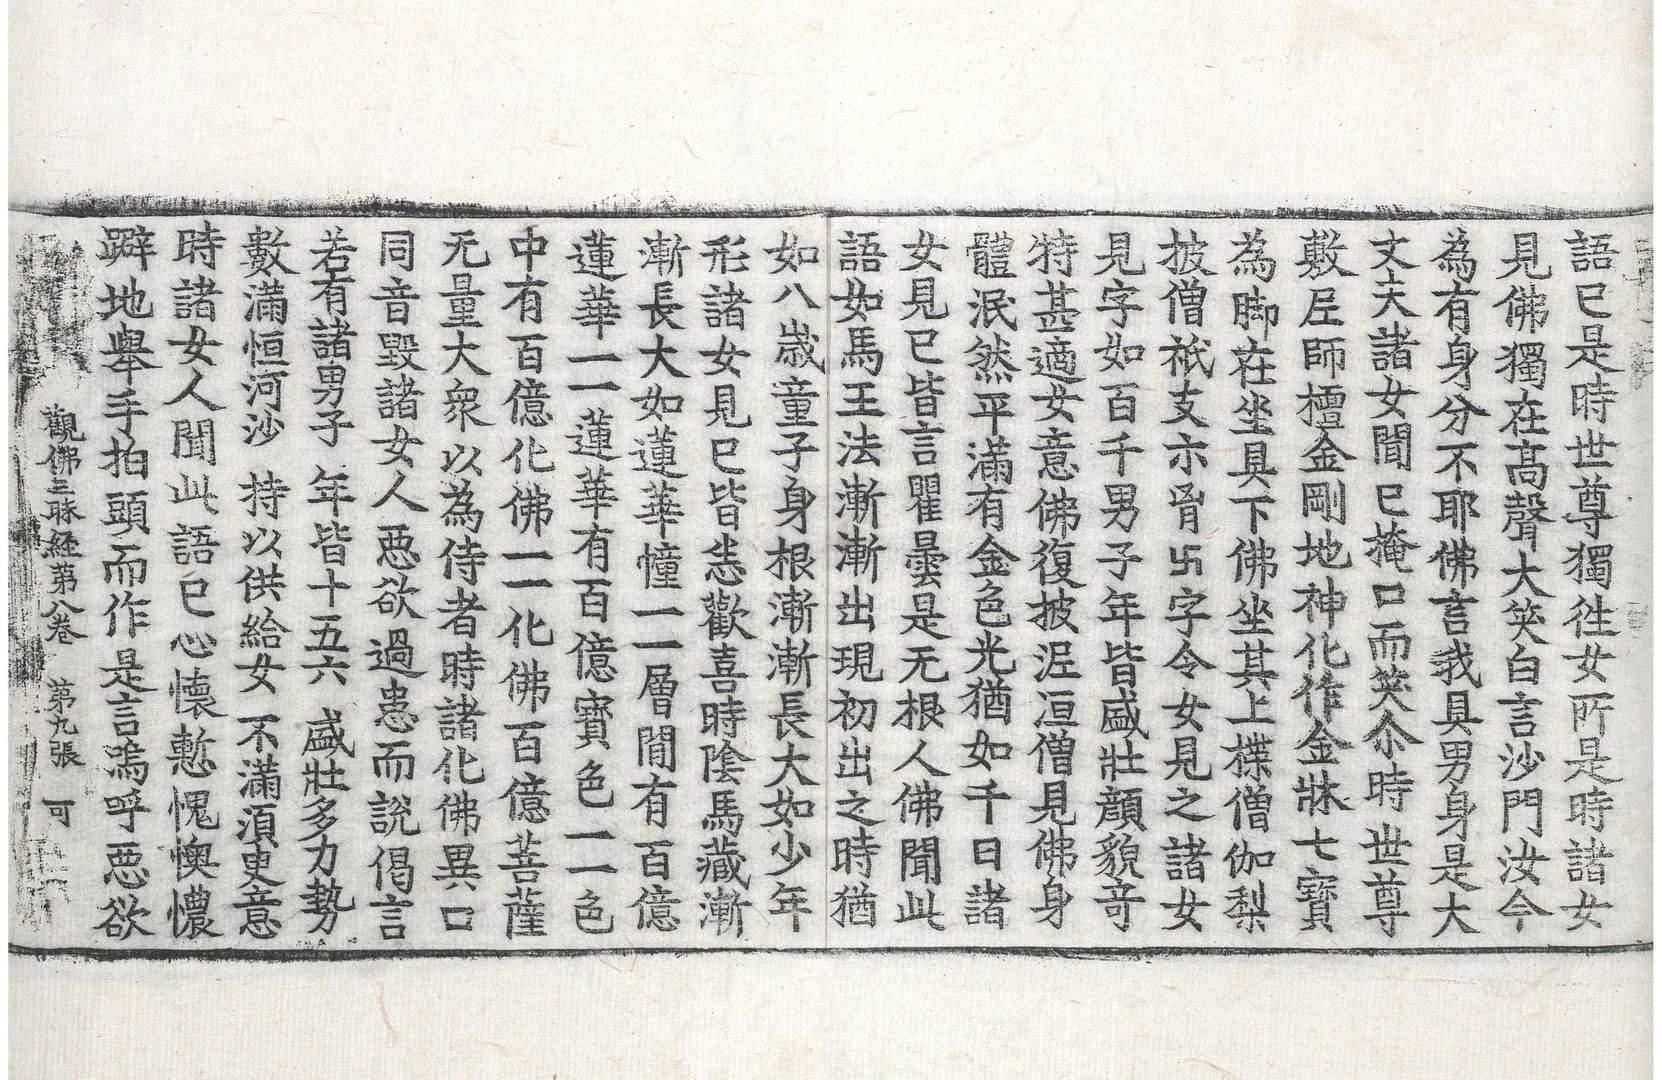 語已是時世尊獨往女所是時諸女
見佛獨在高聲大笑白言沙門汝今
為有身分不耶佛言我具男身是大
丈夫諸女聞已掩口而笑尒時世尊
敷尼師檀金剛地神化作金牀七寶
為脚在坐具下佛坐其上襟僧伽梨
披僧祇支示胷卐字令女見之諸女
見字如百千男子年皆盛壯顔貌奇
特甚適女意佛復披涅洹僧見佛身
體泯然平滿有金色光猶如千日諸
女見已皆言瞿曇是无根人佛聞此
語如馬王法漸漸出現初出之時猶
如八歳童子身根漸漸長大如少年
形諸女見已皆悉歡喜時陰馬藏漸
漸長大如蓮華幢一一層間有百億
蓮華一一蓮華有百億寶色一一色
中有百億化佛一一化佛百億菩薩
无量大衆以為侍者時諸化佛異口
同音毀諸女人惡欲過患而說偈言
若有諸男子 年皆十五六 盛壯多力勢
數滿恒河沙 持以供給女 不滿湏臾意
時諸女人聞此語已心懷慙愧懊憹
躃地舉手拍頭而作是言嗚呼惡欲
觀佛三昧経苐八卷 苐九張 可